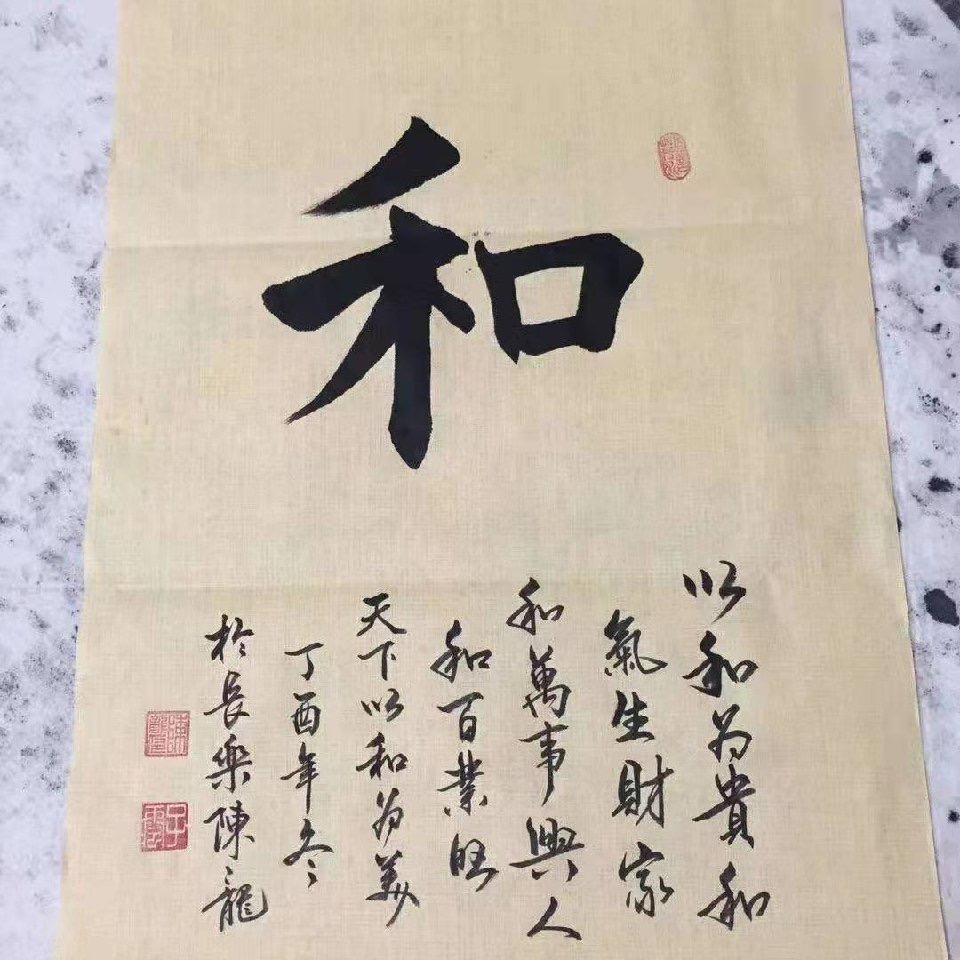 和
以和為貴和
氣生財家
和萬事興人
和百業旺
天下以和為美
丁酉年冬
於長樂陳龍